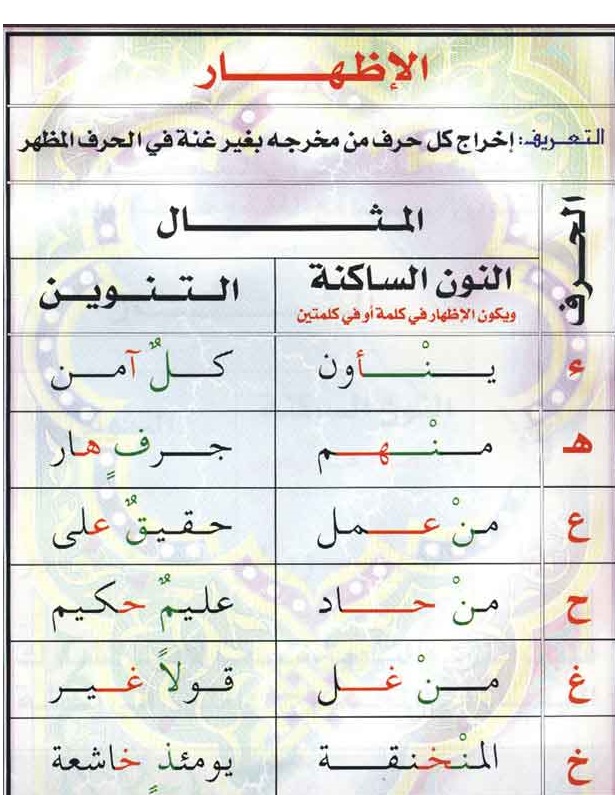 الإظهار
التعريف: إخراج كل حرف من مخرجه بغير غنة في الحرف المظهر
الحرف
المثال
النون الساكنة
ويكون الإظهار في كلمة أو في كلمتين
التنوين
ء ينْأون كلٌ آمن
هـ منْهم جرفٍ هار
ع منْ عمل حقيقٌ على
ح منْ حاد عليمٌ حكيم
غ منْ غل قولاً غير
خ المنْخنقة يومئذٍ خاشعة